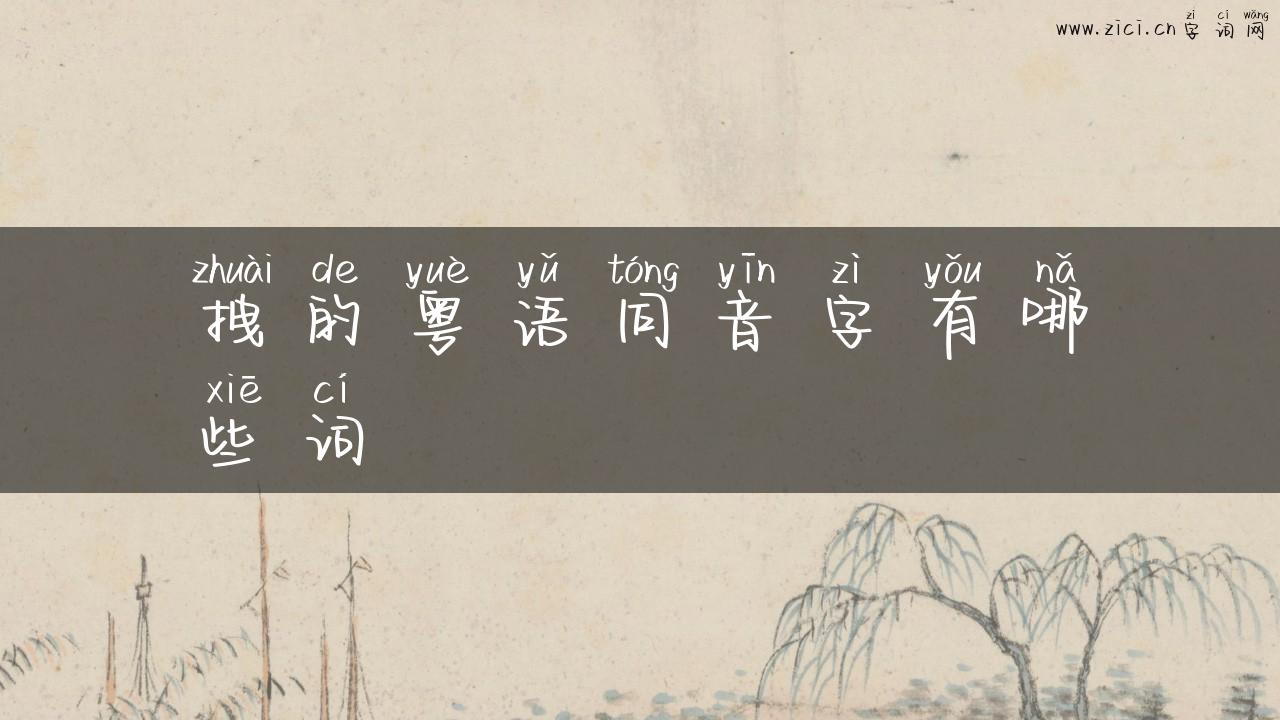 zì cí wǎng
www.zici.cn 字词网
zhuài de yuè yǔ tóng yīn zì yǒu nǎ
拽的粤语同音字有哪
xiē cí
些词